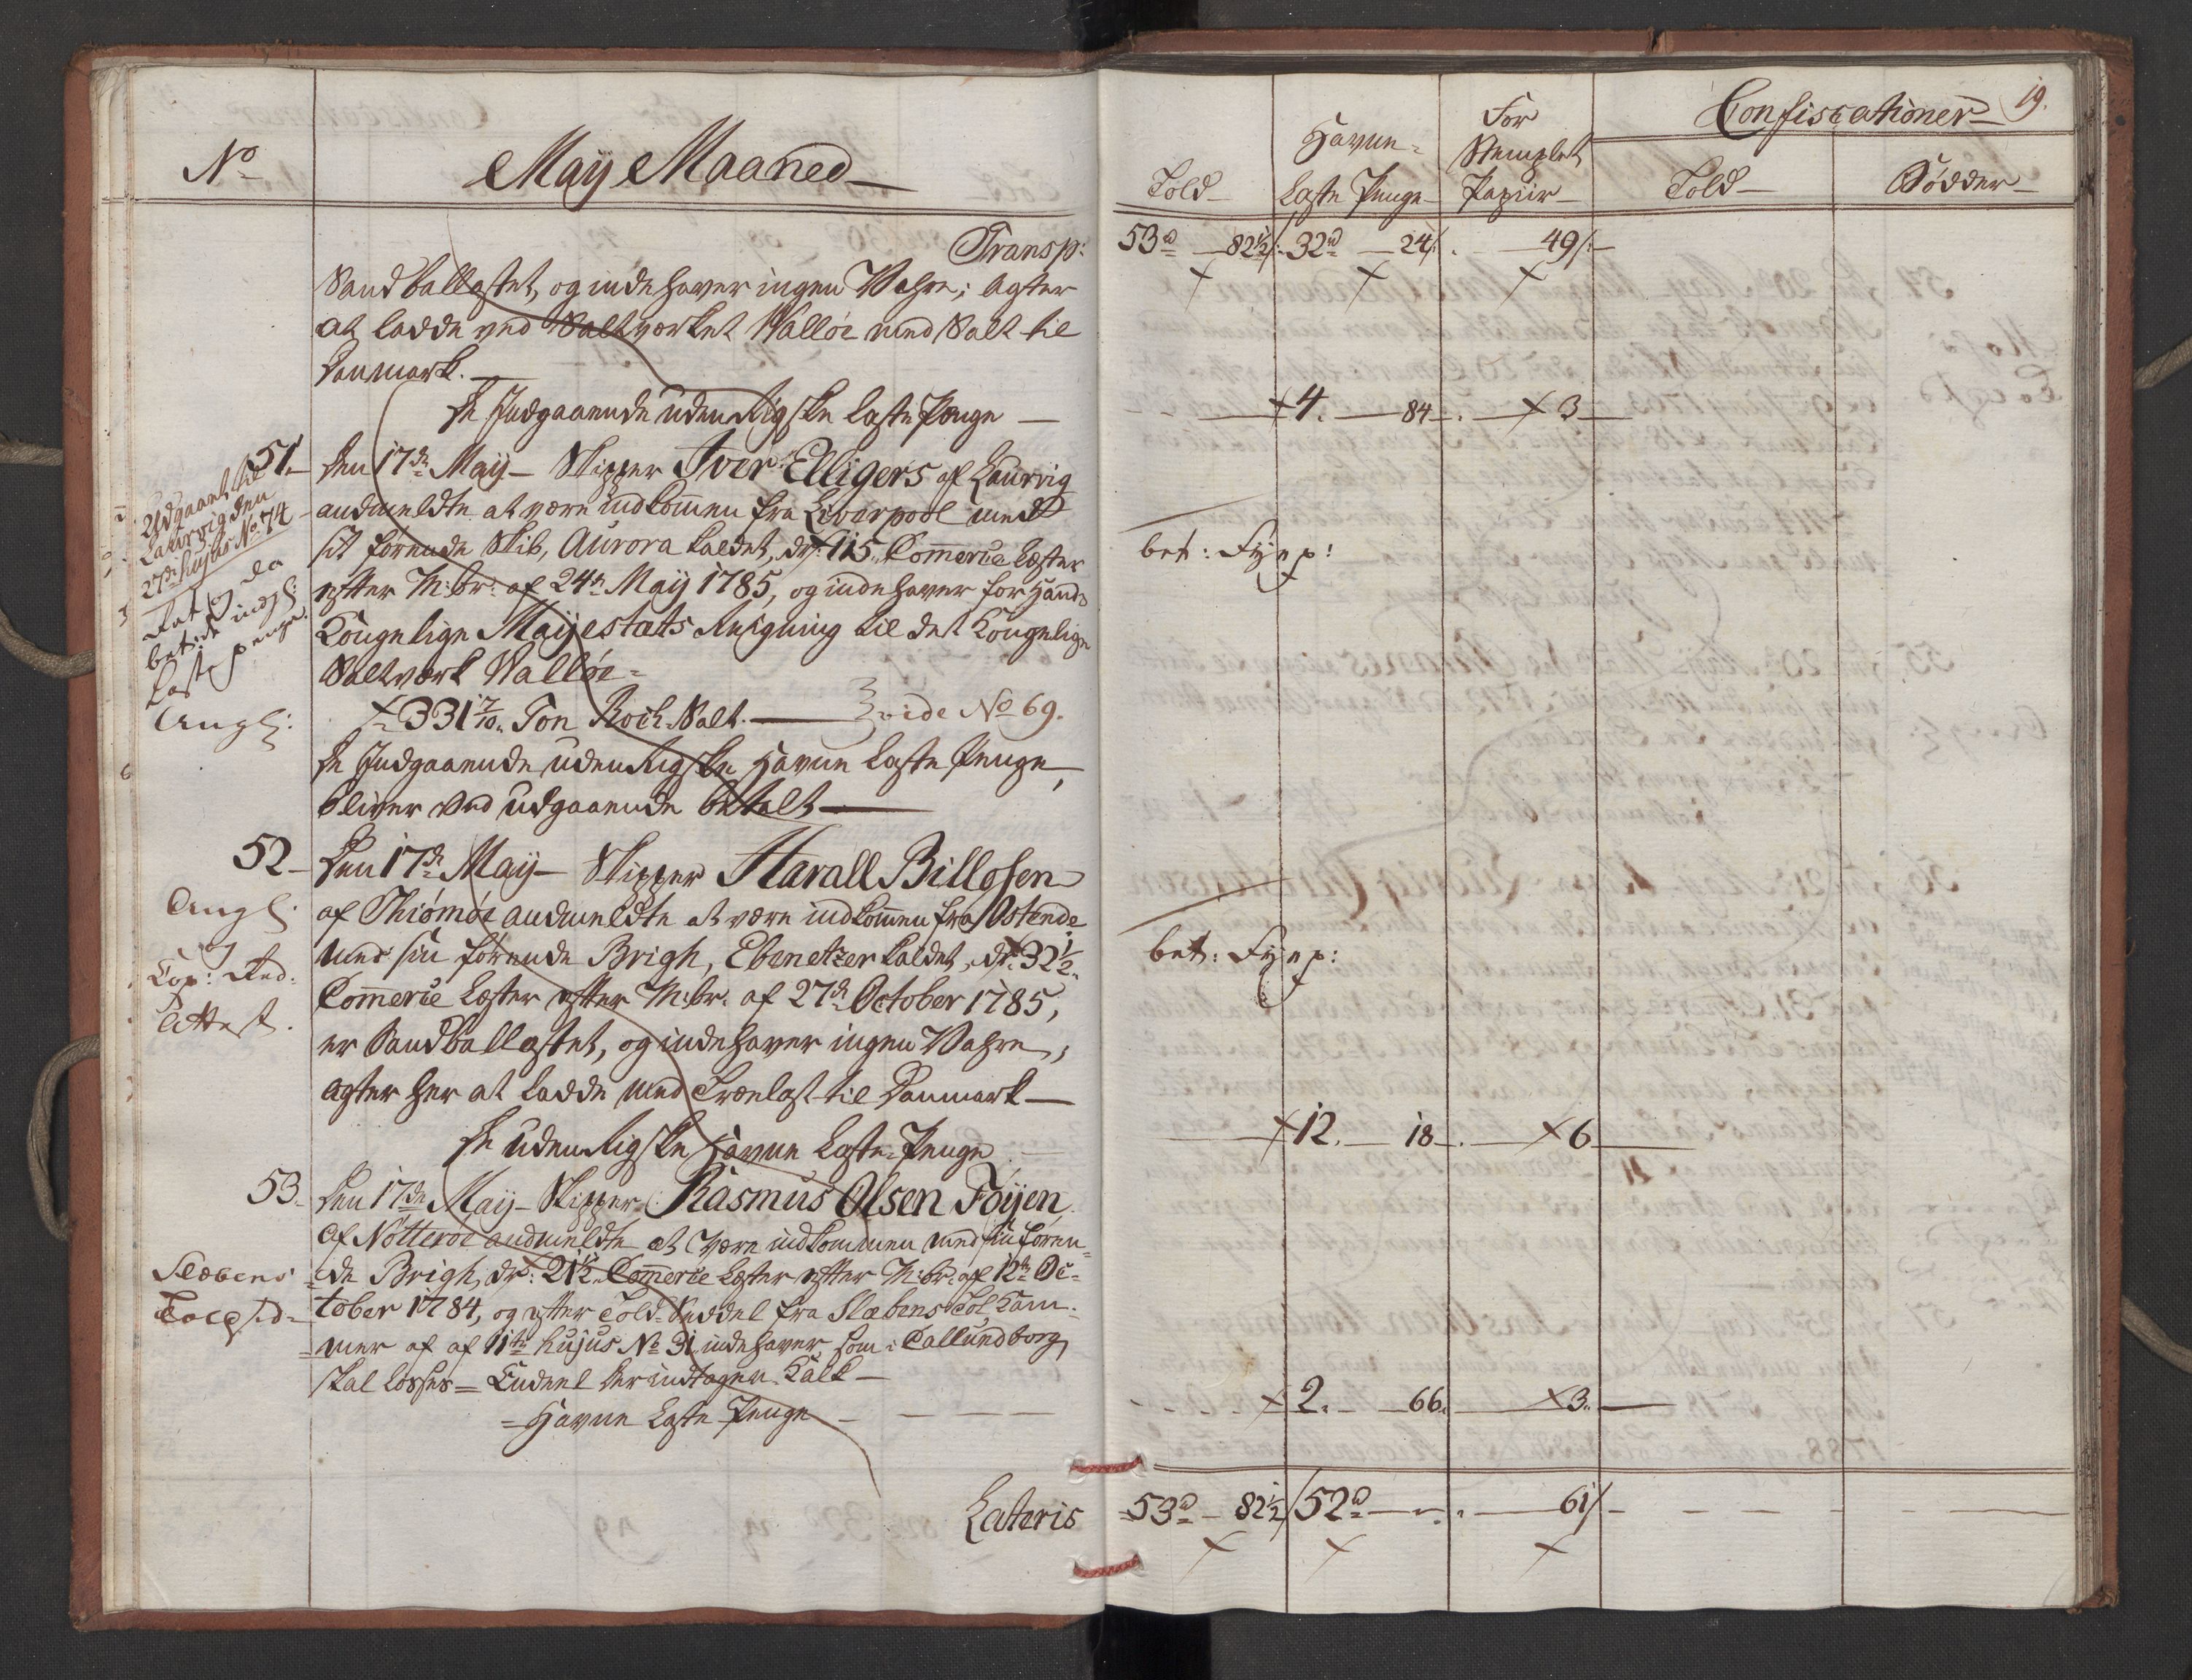 No
May Maaned
Transp:
Sandballastet, og inde haver ingen Vahre; agter
at ladde ved Saltværket Walløe med Salt til
Danmark.
De Indgaaende udenrigske Laste Penge
51.
Den 17de May Skipper Iver Elligers af Laurvig
andmeldte at være indkommen fra Liverpool med
sit førende Skib, Aurora kaldet, dr: 115 Commerce Læster
efter M:br: af 24de May 1785, og inde haver for Hands
Kongelige Mayestæts Regning til det Kongelige
Saltværk Walløe
331 7/10 Ton Roch Salt. vide No 69.
De Indgaaende udenrigske Havne Laste Penge,
bliver ved udgaaende betalt
Udgaaet til
Laurvig den
27de hujus No 74
da
indg:
Laste penge.
Angl:
52
Den 17de May Skipper Harall Billosen
af Thiømøe andmeldte at være indkommen fra Ostende
med sin førende Brigh, Ebenetzer kaldet, dr: 32 1/2
Commerce Læster efter M:br. af 27de October 1785,
er Sandballastet, og inde haver ingen Vahre,
agter her at ladde med Trælast til Danmark
De udenrigske Havne Laste Penge
Angl:
og
Cop:
Attest.
53.
Den 17de May Skipper Rasmus Olsen Föyen
af Nötteröe andmeldte at være indkommen med sin føren=
=de Brigh, dr: 21 1/2 Commerce Læster efter M:br: af 12te Oc=
tober 1784, og efter Told Seddel fra Slæbens Tol Kam=
=mer af af 11te hujus No 31 inde haver, som i Callundborg
skal losses = Endeel der indtagen Kalk
= Havne Laste Penge
Slæbens
Toldsed=
Lateris
19.
Confiscationer
Told
Havne=
Laste Penge
For
Stemplet
Papiir
Told
Bødder
53 d 82 1/2 /: 32 d 24 /: 49 /:
4. 84. 3
bet: Fyep:
bet: Fyep:
12. 18. 6
2. 66. 3.
53 d 82 1/2 / 52 d 61 /